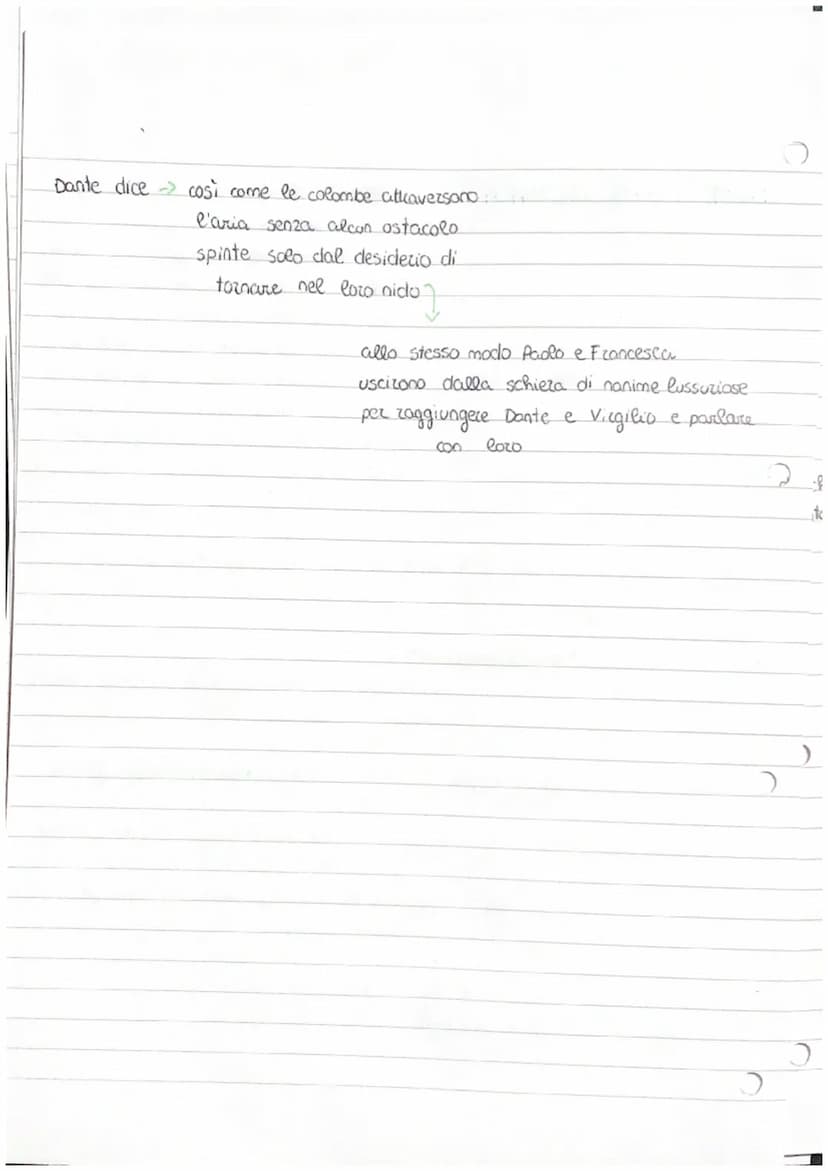 Dante dice → così come le colombe attraversano
l'aria senza alcun ostacolo
spinte solo dal desiderio di
tornare nel loro nido
allo stesso modo Paolo e Francesca
uscirono dalla schiera di nanime lussuriose
per raggiungere Dante e Virgilio e parlare
con loro